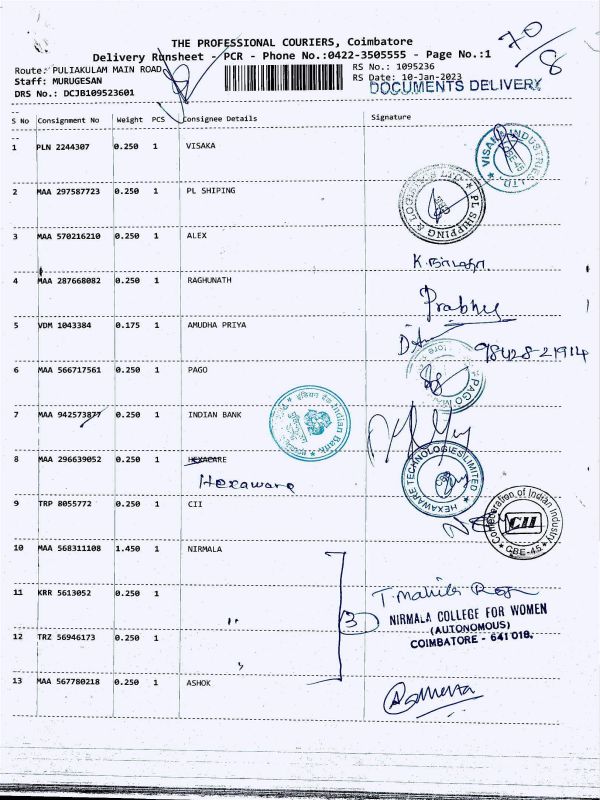 THE PROFESSIONAL COURIERS, Coimbatore
70/8
Delivery Runsheet - PCR - Phone No.:0422-3505555 - Page No.:1
Route: PULIAKULAM MAIN ROAD RS No.: 1095236
Staff: MURUGESAN RS Date: 10-Jan-2023
DRS No.: DCJB109523601 DOCUMENTS DELIVERY
S No Consignment No Weight PCS Consignee Details Signature
1 PLN 2244307 0.250 1 VISAKA
VISAKA INDUSTRIES LTD. CBE-45
2 MAA 297587723 0.250 1 PL SHIPING
PL SHIPPING & LOGISTICS LTD.
3 MAA 570216210 0.250 1 ALEX
4 MAA 287668082 0.250 1 RAGHUNATH
Prabhu
5 VDM 1043384 0.175 1 AMUDHA PRIYA
98428-21914
6 MAA 566717561 0.250 1 PAGO
PAGO
7 MAA 942573877 0.250 1 INDIAN BANK
Indian Bank
8 MAA 296639052 0.250 1 HEXACARE
Hexaware
HEXAWARE TECHNOLOGIES LIMITED
9 TRP 8055772 0.250 1 CII
Confederation of Indian Industry
CII
CBE-45.
10 MAA 568311108 1.450 1 NIRMALA
11 KRR 5613052 0.250 1 "
3
NIRMALA COLLEGE FOR WOMEN
(AUTONOMOUS)
COIMBATORE - 641 018.
12 TRZ 56946173 0.250 1 "
13 MAA 567780218 0.250 1 ASHOK